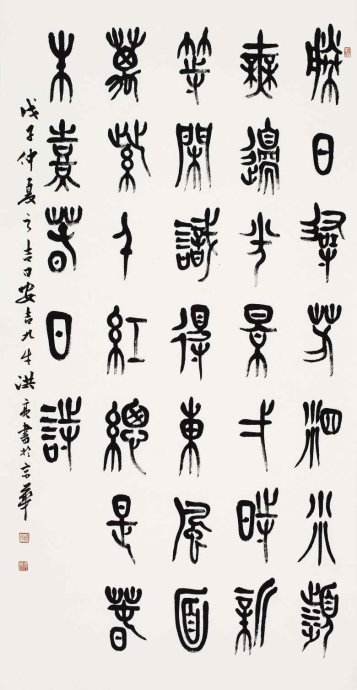 勝日尋芳泗水濱
無邊光景一時新
等閑識得東風面
萬紫千紅總是春
朱熹春日詩
戊子仲夏之吉日安吉九牛洪亮書於京華